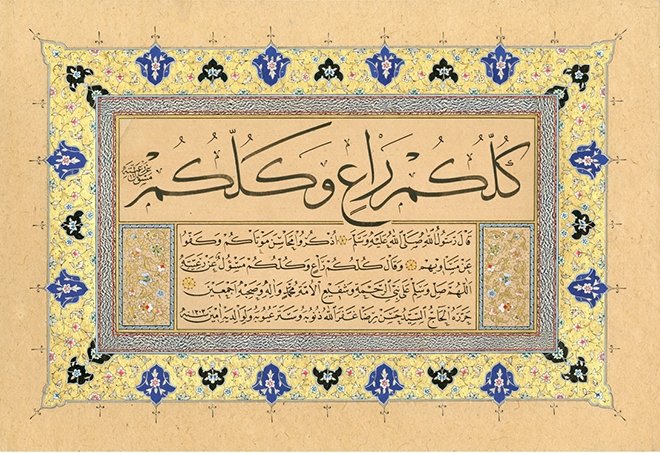 كُلُّكُمْ رَاعٍ وَكُلُّكُمْ
مسؤل عن رعيته
قال رسول الله صلى الله عليه وسلم اذكروا محاسن موتاكم وكفوا
عن مساويهم وقال كلكم راع وكلكم مسؤل عن رعيته
اللهم صل وسلم على نبي الرحمة وشفيع الأمة محمد وآله وصحبه اجمعين
حرره الحاج السيد حسن رضا غفر الله ذنوبه وستر عيوبه ولوالديه آمين